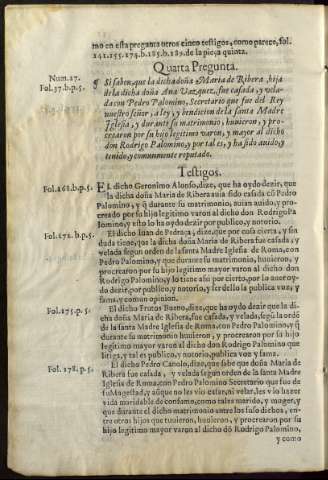 mo en esta pregunta otros cinco testigos, como parece, fol.
141.155.174.b.185.b.189. de la pieça quinta.
Quarta Pregunta.
Num. 27.
Fol. 37. b. p. 5.
Si saben, que la dicha doña Maria de Ribera, hija
de la dicha doña Ana Vazquez, fue casada, y vela-
da con Pedro Palomino, Secretario que fue del Rey
nuestro señor, a ley, y bendicion de la santa Madre
Iglesia, y durante su matrimonio, huuieron, y pro-
crearon por su hijo legitimo varon, y mayor al dicho
don Rodrigo Palomino, y por tal es, y ha sido auido, y
tenido, y comunmente reputado.
Testigos.
Fol. 168. b. p. 5.
El dicho Geronimo Alonso, dize, que ha oydo dezir, que
la dicha doña Maria de Ribera auia sido casada cõ Pedro
Palomino, y q̃ durante su matrimonio, auian auido, y pro-
creado por su hijo legitimo varon al dicho don Rodrigo Pa-
lomino, y esto lo ha oydo dezir por publico, y notorio.
Fol. 172. b. p. 5.
El dicho Iuan de Pedraça, dize, que por cosa cierta, y sin
duda tiene, que la dicha doña Maria de Ribera fue casada, y
velada segun orden de la santa Madre Iglesia de Roma, con
Pedro Palomino, y que durante su matrimonio, huuieron, y
procrearon por su hijo legitimo mayor varon al dicho don
Rodrigo Palomino, y lo tiene assi por cierto, por lo auer oy-
do dezir, por publico, y notorio, y ser dello la publica voz, y
fama, y comun opinion.
Fol. 175. p. 5.
El dicho Frutos Bueno, dize, que ha oydo dezir que la di-
cha doña Maria de Ribera, fue casada, y velada, segũ la ordẽ
de la santa Madre Iglesia de Roma, con Pedro Palomino, y q̃
durante su matrimonio huuieron, y procrearon por su hijo
legitimo mayor varon al dicho don Rodrigo Palomino que
litiga, y tal es publico, y notorio, publica voz y fama.
Fol. 178. p. 5.
El dicho Pedro Canolo, dize, que sabe que doña Maria de
Ribera fue casada, y velada segun orden de la santa Madre
Iglesia de Roma, con Pedro Palomino Secretario que fue de
su Magestad, y aũque no les vio casar, ni velar, les vio hazer
vida maridable de consuno, como tales marido, y muger, y
que durante el dicho matrimonio entre los suso dichos, en-
tre otros hijos que tuuieron, huuieron, y procrearon por su
hijo legitimo mayor varon al dicho dõ Rodrigo Palomino,
y como